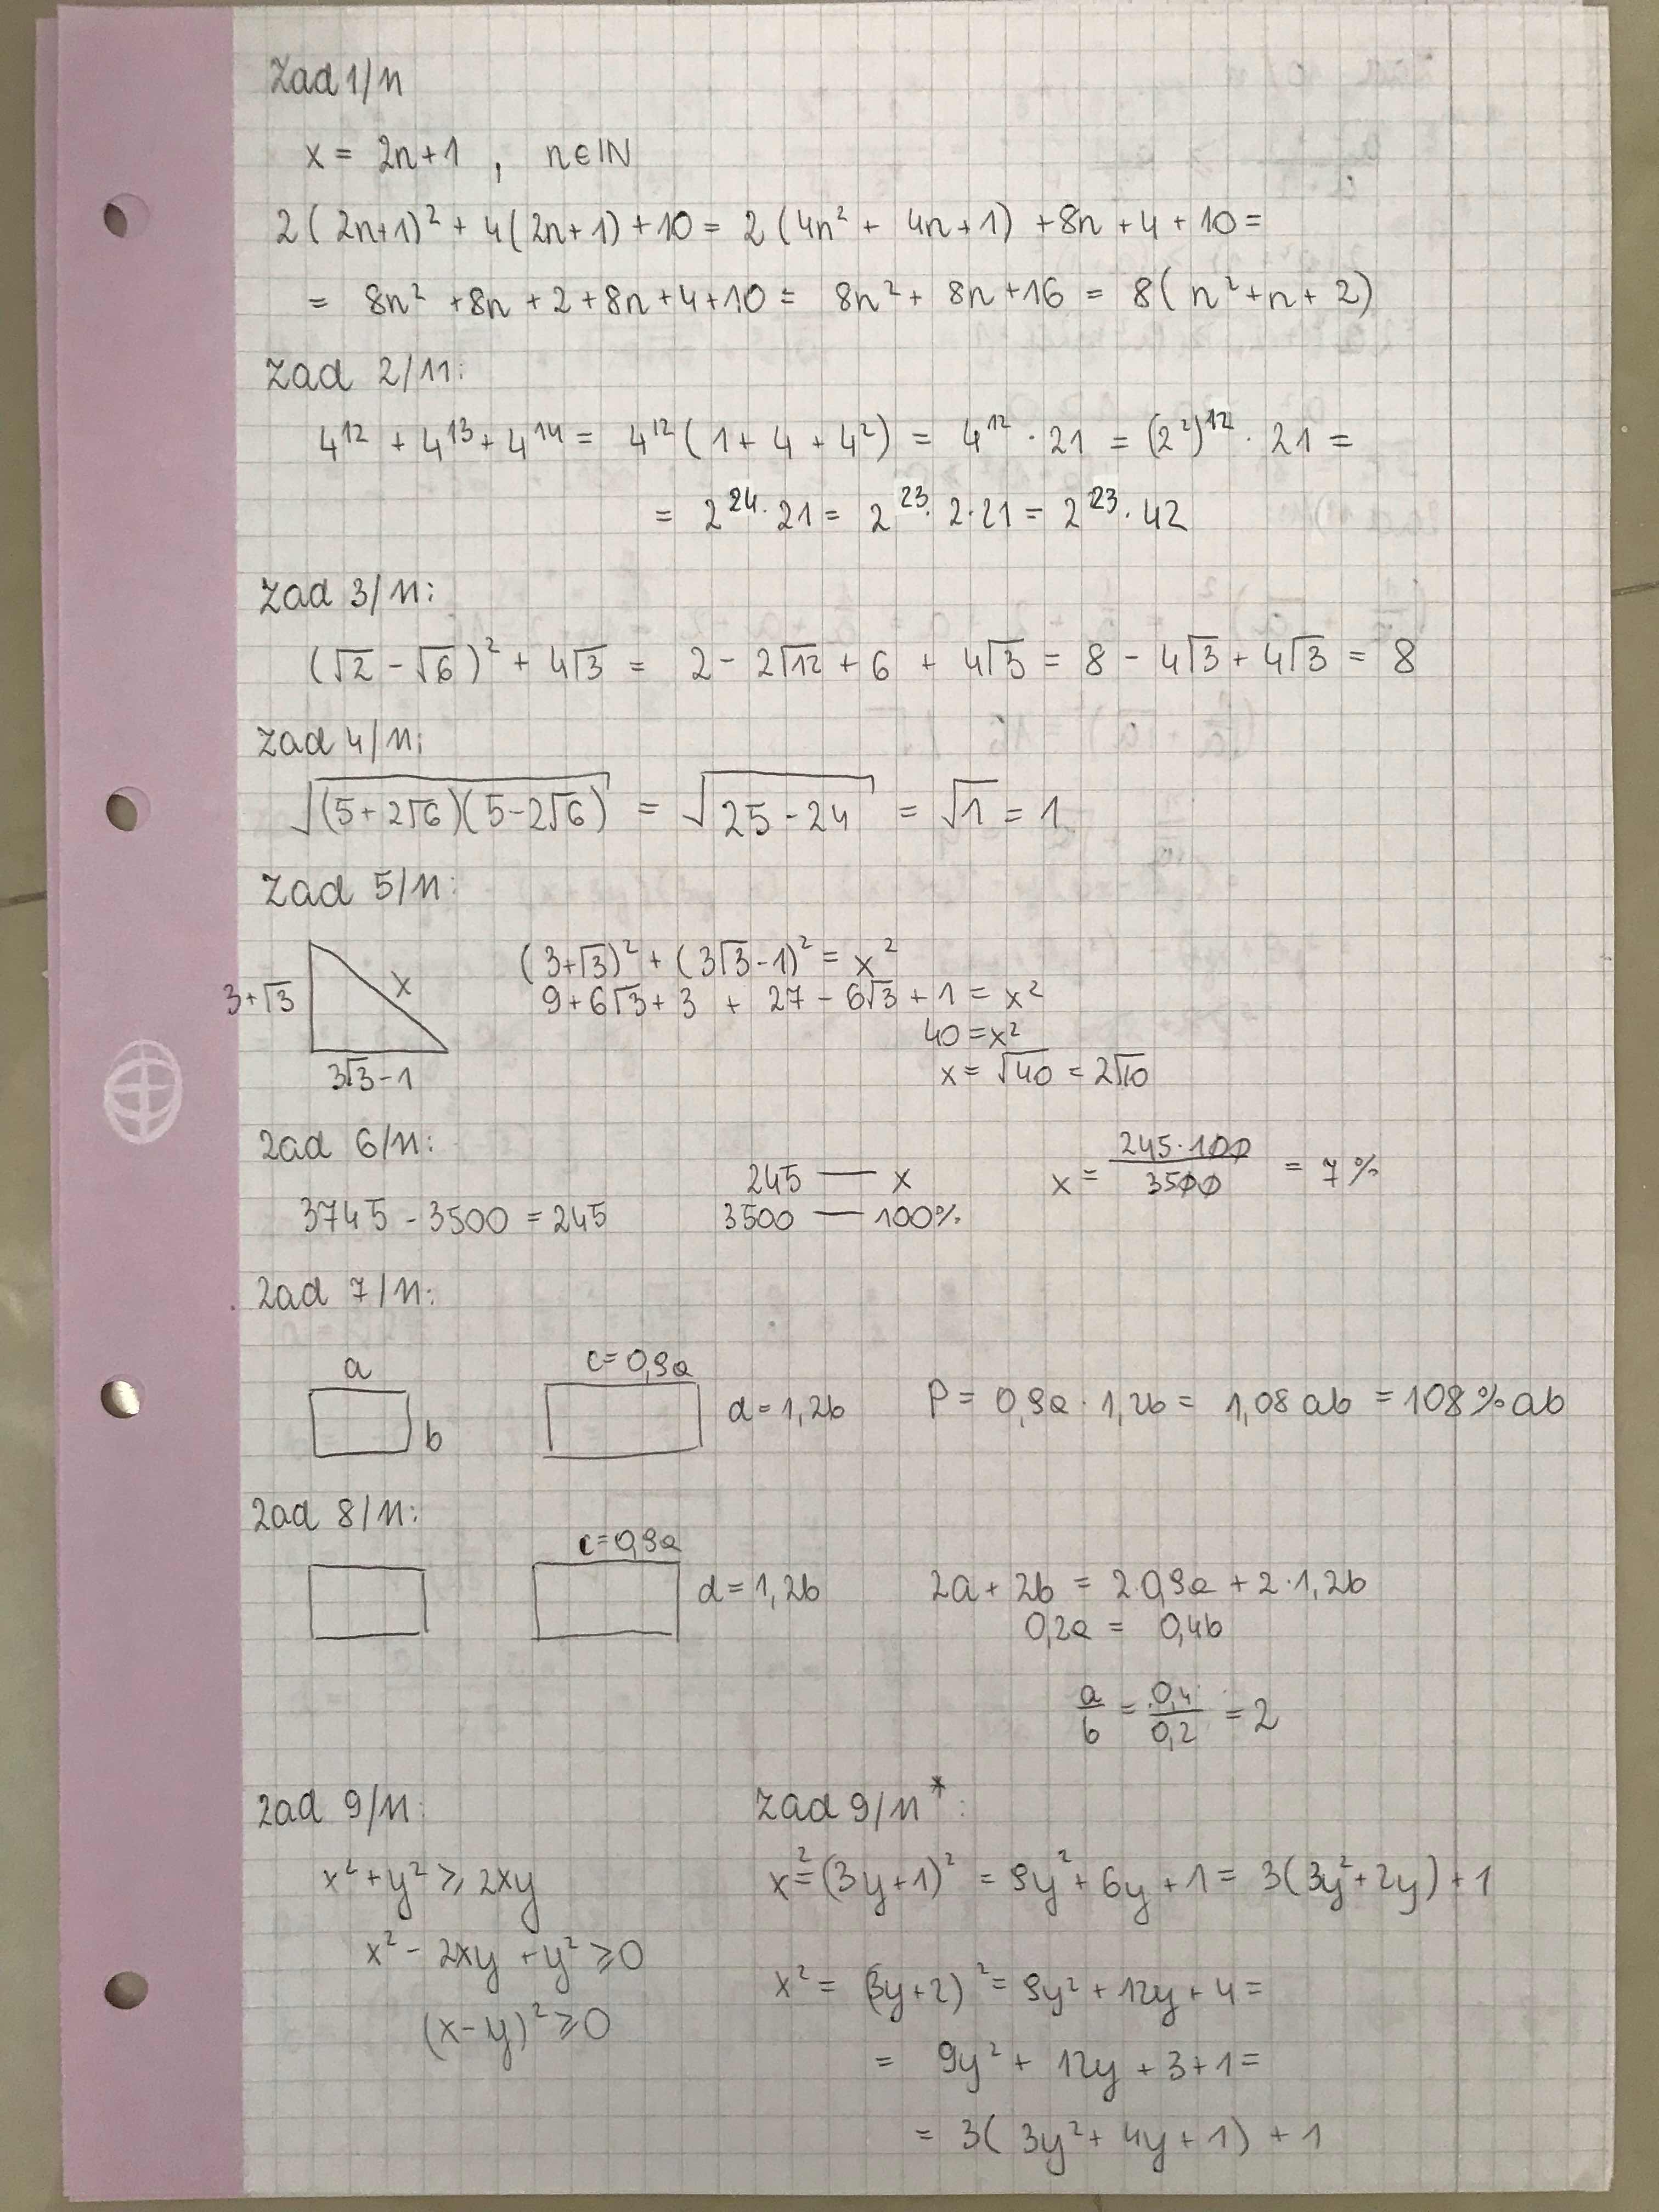 Zad 1/11
x = 2n+1 , n∈ℕ
2(2n+1)² + 4(2n+1) + 10 = 2(4n² + 4n+1) + 8n + 4 + 10 =
= 8n² + 8n + 2 + 8n + 4 + 10 = 8n² + 8n + 16 = 8(n² + n + 2)
Zad 2/11:
4¹² + 4¹³ + 4¹⁴ = 4¹²(1 + 4 + 4²) = 4¹² · 21 = (2²)¹² · 21 =
= 2²⁴ · 21 = 2²³ · 2 · 21 = 2²³ · 42
Zad 3/11:
(√2 - √6)² + 4√3 = 2 - 2√12 + 6 + 4√3 = 8 - 4√3 + 4√3 = 8
Zad 4/11:
√((5+2√6)(5-2√6)) = √(25-24) = √1 = 1
Zad 5/11:
3+√3
x
3√3-1
(3+√3)² + (3√3-1)² = x²
9 + 6√3 + 3 + 27 - 6√3 + 1 = x²
40 = x²
x = √40 = 2√10
Zad 6/11:
3745 - 3500 = 245
245 — x
3500 — 100%
x = 245·100 / 3500 = 7%
Zad 7/11:
a
b
c=0,9a
d=1,2b
P = 0,9a · 1,2b = 1,08 ab = 108% ab
Zad 8/11:
c=0,9a
d=1,2b
2a + 2b = 2·0,9a + 2·1,2b
0,2a = 0,4b
a/b = 0,4/0,2 = 2
Zad 9/11:
x² + y² ≥ 2xy
x² - 2xy + y² ≥ 0
(x-y)² ≥ 0
Zad 9/11*:
x² = (3y+1)² = 9y² + 6y + 1 = 3(3y² + 2y) + 1
x² = (3y+2)² = 9y² + 12y + 4 =
= 9y² + 12y + 3 + 1 =
= 3(3y² + 4y + 1) + 1